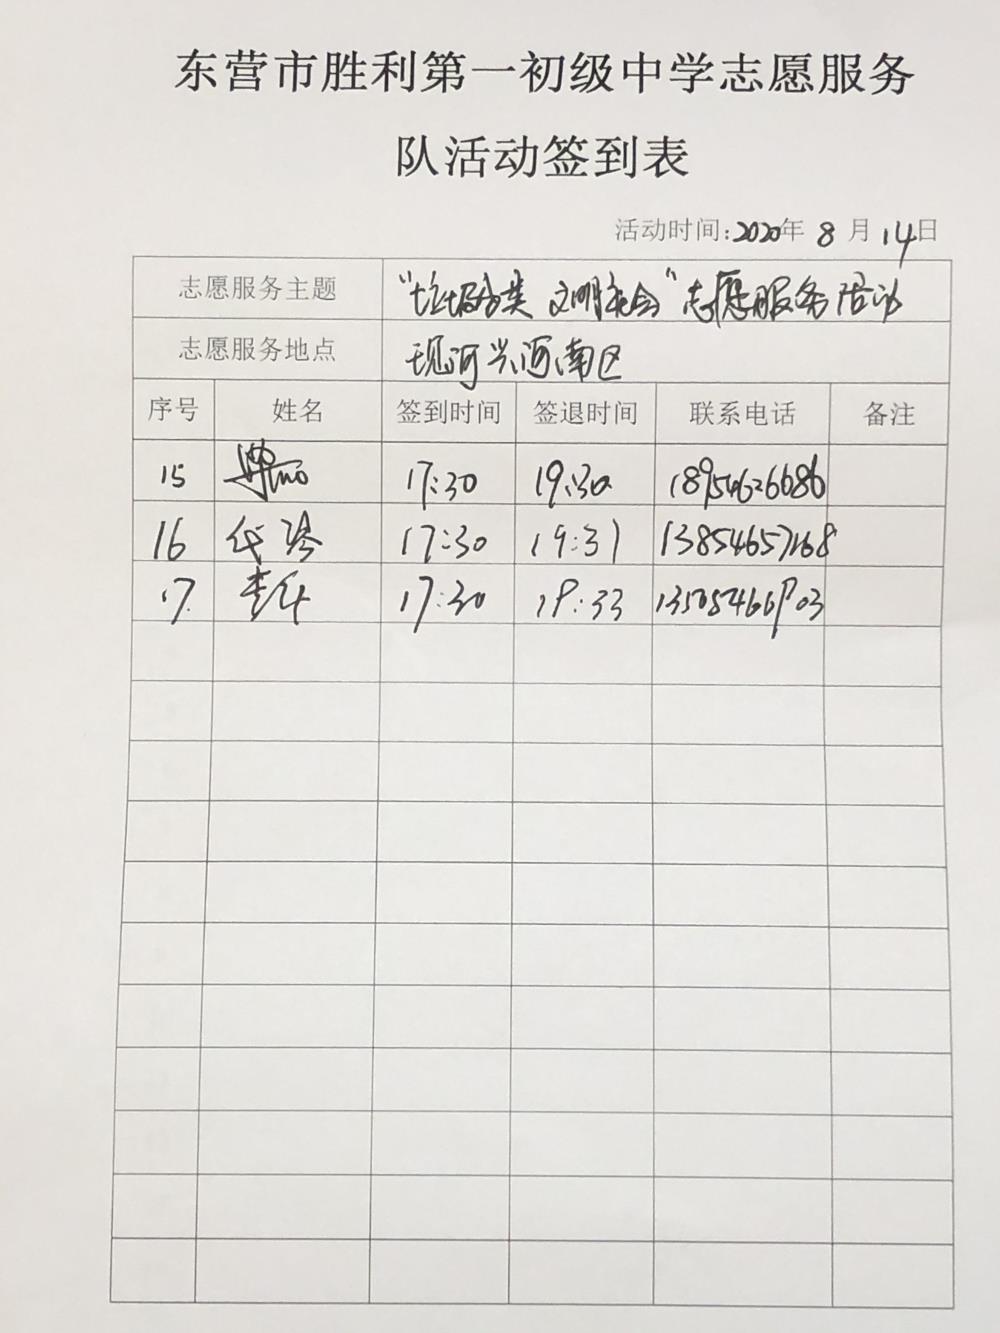 东营市胜利第一初级中学志愿服务
队活动签到表
活动时间:2020年 8 月 14日
志愿服务主题 “垃圾分类 文明社会”志愿服务活动
志愿服务地点 现河兴河南区
序号 姓名 签到时间 签退时间 联系电话 备注
15 17:30 19:30 18954626686
16 17:30 19:31 13854657168
17 17:30 19:33